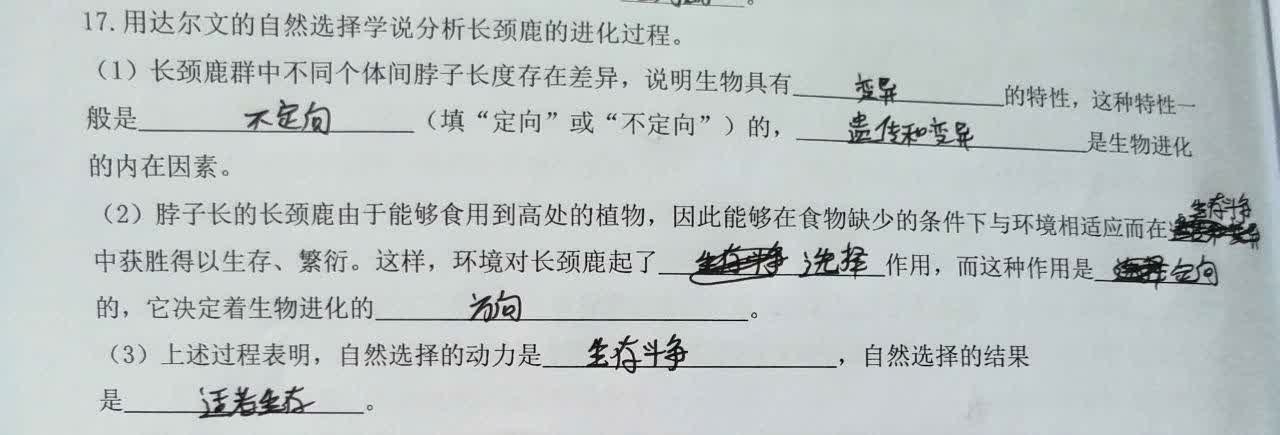 17.用达尔文的自然选择学说分析长颈鹿的进化过程。
（1）长颈鹿群中不同个体间脖子长度存在差异，说明生物具有 变异 的特性，这种特性一
般是 不定向 （填“定向”或“不定向”）的， 遗传和变异 是生物进化
的内在因素。
（2）脖子长的长颈鹿由于能够食用到高处的植物，因此能够在食物缺少的条件下与环境相适应而在 生存斗争
中获胜得以生存、繁衍。这样，环境对长颈鹿起了 选择 作用，而这种作用是 定向
的，它决定着生物进化的 方向 。
（3）上述过程表明，自然选择的动力是 生存斗争 ，自然选择的结果
是 适者生存 。